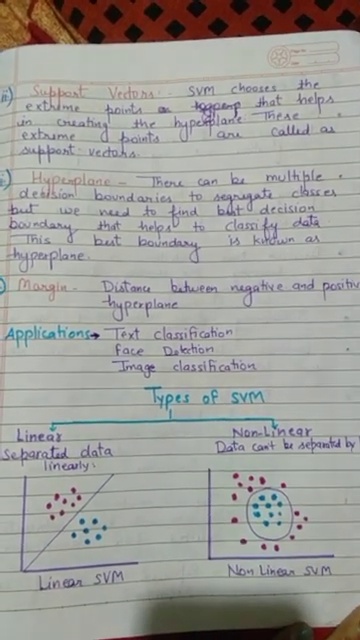 Support Vectors:- SVM chooses the
extreme points that helps
in creating the hyperplane These
extreme points are called as
support vectors.
Hyperplane - There can be multiple
decision boundaries to segregate classes
but we need to find best decision
boundary that helps to classify data
This best boundary is known as
hyperplane.
Margin - Distance between negative and positive
hyperplane
Applications → Text classification
Face Detection
Image classification
Types of SVM
Linear
Separated data
linearly.
Non-Linear
Data can't be separated by
Linear SVM
Non Linear SVM